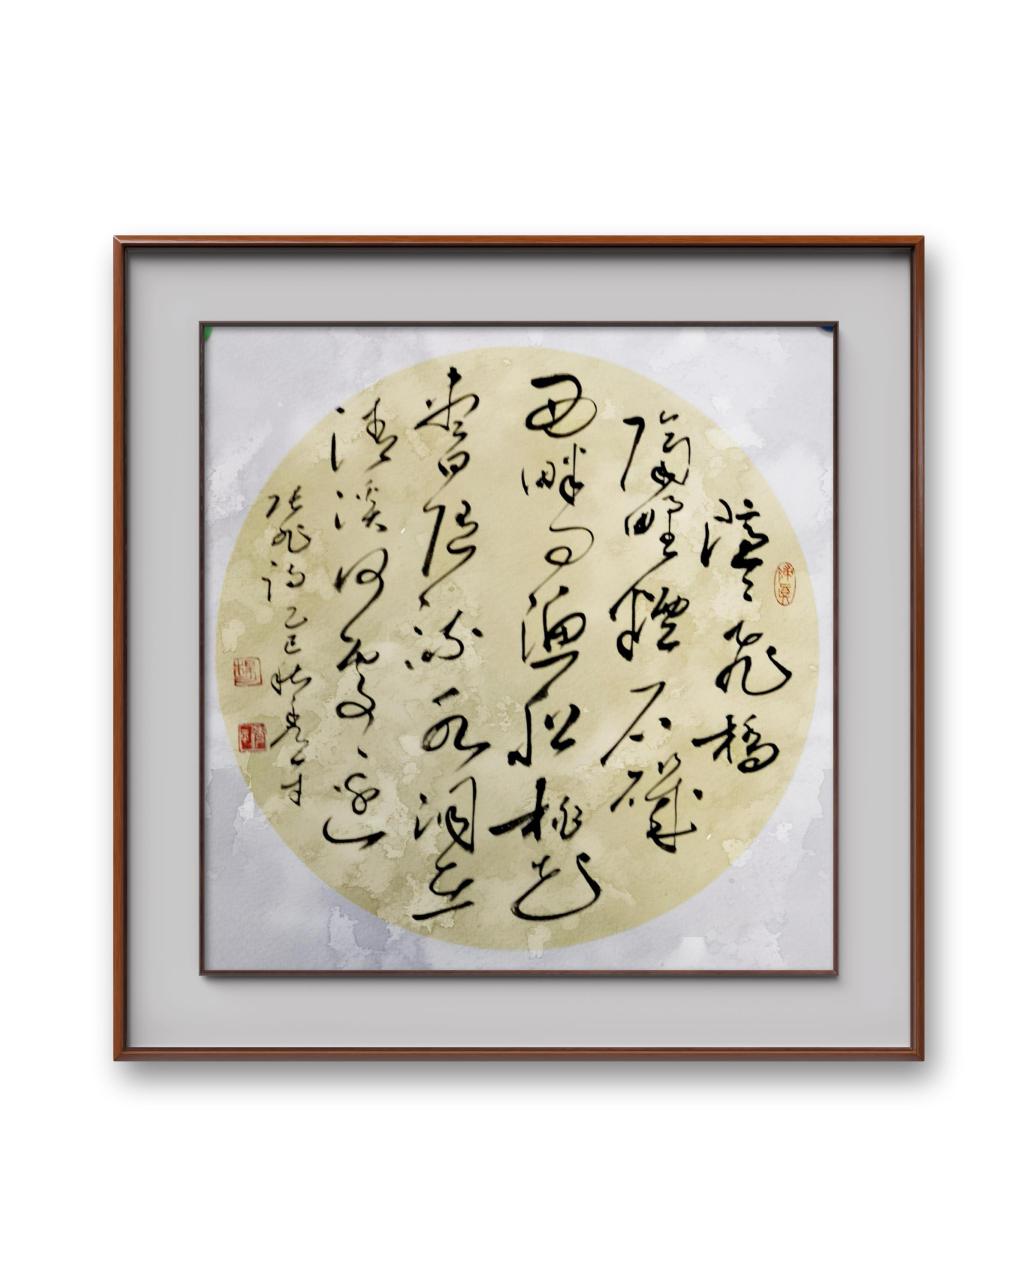 隱〻飛橋
隔野煙石磯
西畔问漁船桃花
盡日随流水洞在
清溪何處邊
张旭诗乙巳秋